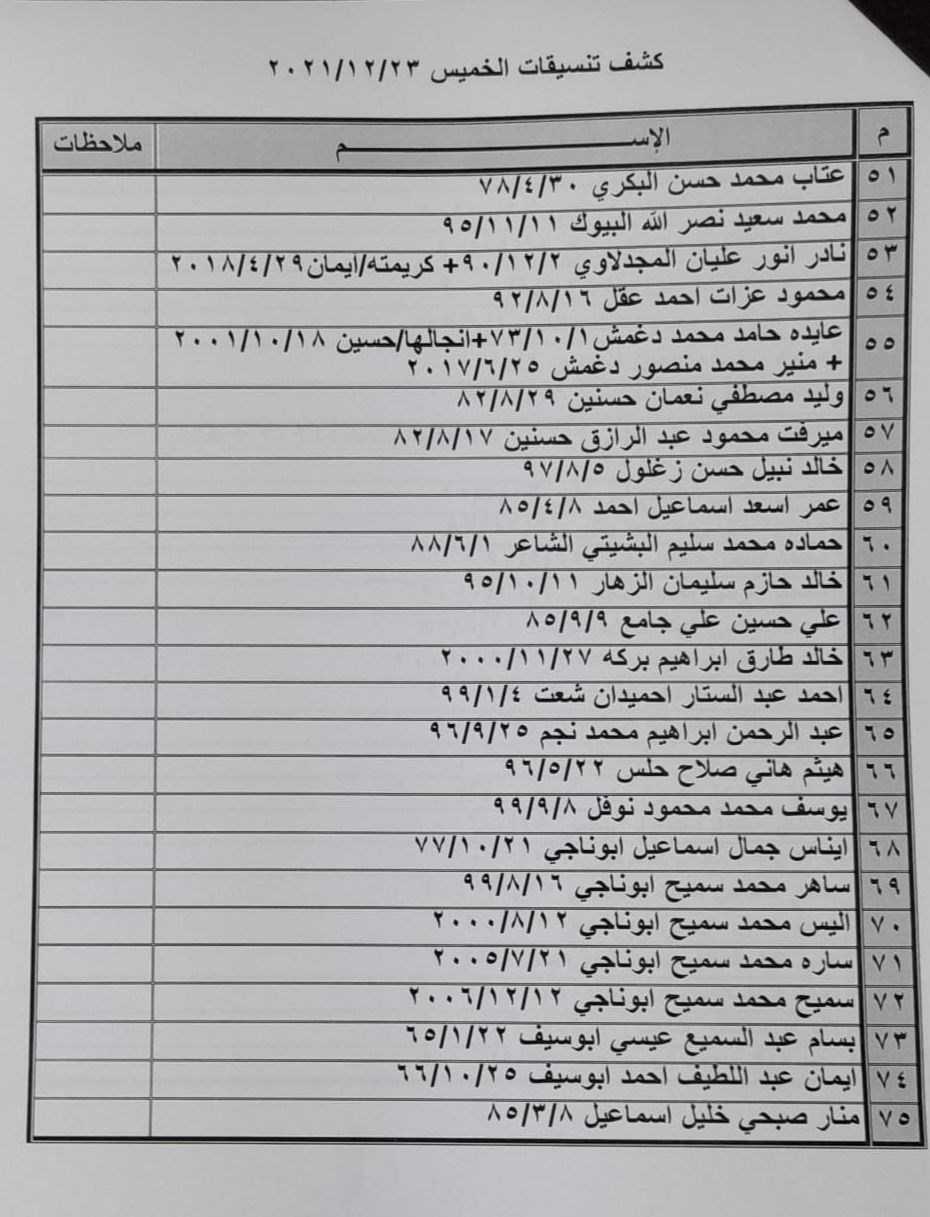 كشف تنسيقات الخميس ٢٠٢١/١٢/٢٣
م الإســـــــــــــــــــم ملاحظات
٥١ عتاب محمد حسن البكري ٧٨/٤/٣٠
٥٢ محمد سعيد نصر الله البيوك ٩٥/١١/١١
٥٣ نادر انور عليان المجدلاوي ٩٠/١٢/٢+ كريمته/ايمان٢٠١٨/٤/٢٩
٥٤ محمود عزات احمد عقل ٩٢/٨/١٦
٥٥ عايده حامد محمد دغمش٧٣/١٠/١+انجالها/حسين ٢٠٠١/١٠/١٨
+ منير محمد منصور دغمش ٢٠١٧/٦/٢٥
٥٦ وليد مصطفي نعمان حسنين ٨٢/٨/٢٩
٥٧ ميرفت محمود عبد الرازق حسنين ٨٢/٨/١٧
٥٨ خالد نبيل حسن زغلول ٩٧/٨/٥
٥٩ عمر اسعد اسماعيل احمد ٨٥/٤/٨
٦٠ حماده محمد سليم البشيتي الشاعر ٨٨/٦/١
٦١ خالد حازم سليمان الزهار ٩٥/١٠/١١
٦٢ علي حسين علي جامع ٨٥/٩/٩
٦٣ خالد طارق ابراهيم بركه ٢٠٠٠/١١/٢٧
٦٤ احمد عبد الستار احميدان شعت ٩٩/١/٤
٦٥ عبد الرحمن ابراهيم محمد نجم ٩٦/٩/٢٥
٦٦ هيثم هاني صلاح حلس ٩٦/٥/٢٢
٦٧ يوسف محمد محمود نوفل ٩٩/٩/٨
٦٨ ايناس جمال اسماعيل ابوناجي ٧٧/١٠/٢١
٦٩ ساهر محمد سميح ابوناجي ٩٩/٨/١٦
٧٠ اليس محمد سميح ابوناجي ٢٠٠٠/٨/١٢
٧١ ساره محمد سميح ابوناجي ٢٠٠٥/٧/٢١
٧٢ سميح محمد سميح ابوناجي ٢٠٠٦/١٢/١٢
٧٣ بسام عبد السميع عيسي ابوسيف ٦٥/١/٢٢
٧٤ ايمان عبد اللطيف احمد ابوسيف ٦٦/١٠/٢٥
٧٥ منار صبحي خليل اسماعيل ٨٥/٣/٨